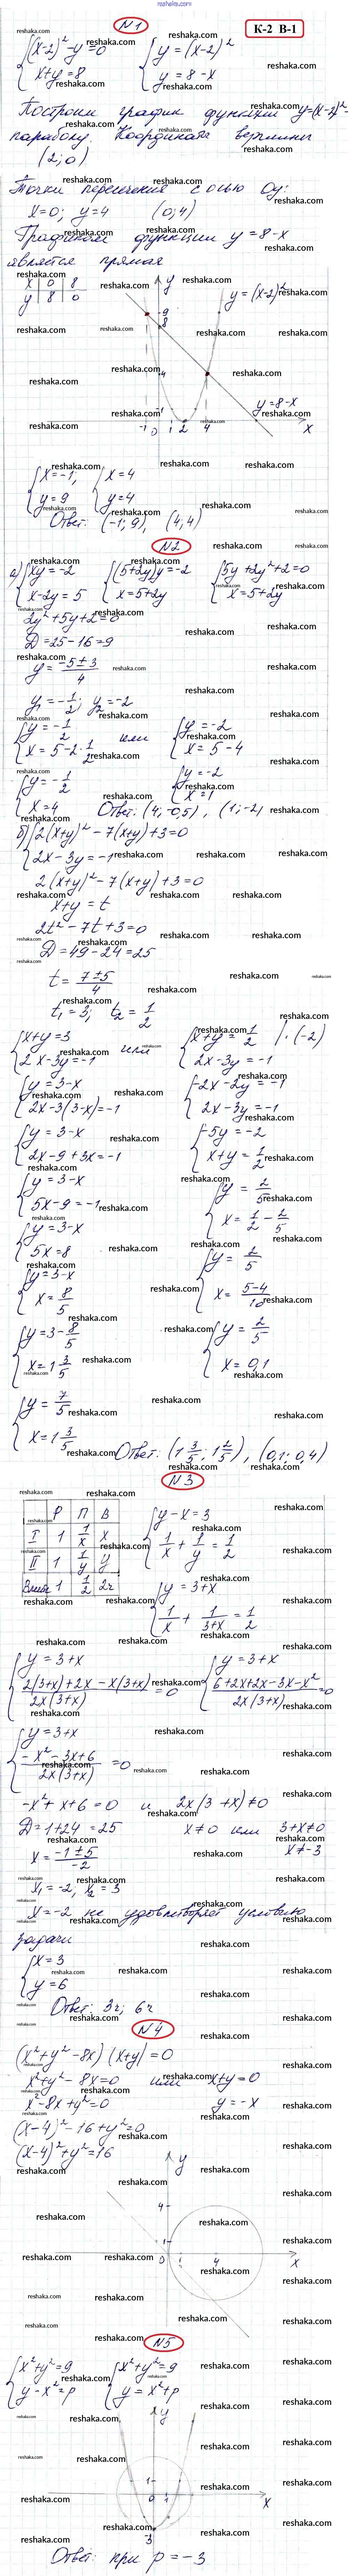 reshaka.com
N1
К-2 В-1
(x-2)² - y = 0
x+y = 8
y = (x-2)²
y = 8-x
Построим график функции y=(x-2)² -
параболу. Координаты вершины
(2; 0)
Точки пересечения с осью Oy:
x=0; y=4 (0; 4)
Графиком функции y = 8-x
является прямая
x | 0 | 8
y | 8 | 0
y
9
8
y = (x-2)²
4
y = 8-x
1
-1 0 1 2 4 x
x = -1, x = 4
y = 9 y = 4
Ответ: (-1; 9), (4; 4)
N2
а) xy = -2 (5+2y)y = -2 5y + 2y² + 2 = 0
x-2y = 5 x = 5+2y x = 5+2y
2y² + 5y + 2 = 0
D = 25-16 = 9
y = (-5±3)/4
y₁ = -1/2; y₂ = -2
y = -1/2 или y = -2
x = 5-2·1/2 x = 5-4
y = -1/2 y = -2
x = 4 x = 1
Ответ: (4; -0,5), (1; -2)
б) 2(x+y)² - 7(x+y) + 3 = 0
2x-3y = -1
2(x+y)² - 7(x+y) + 3 = 0
x+y = t
2t² - 7t + 3 = 0
D = 49-24 = 25
t = (7±5)/4
t₁ = 3; t₂ = 1/2
x+y = 3 или x+y = 1/2 |·(-2)
2x-3y = -1 2x-3y = -1
y = 3-x -2x-2y = -1
2x-3(3-x) = -1 2x-3y = -1
y = 3-x -5y = -2
2x-9+3x = -1 x+y = 1/2
y = 3-x y = 2/5
5x-9 = -1 x = 1/2 - 2/5
y = 3-x y = 2/5
5x = 8 x = (5-4)/10
y = 3-x y = 2/5
x = 8/5 x = 0,1
y = 3-8/5
x = 1 3/5
y = 7/5
x = 1 3/5
Ответ: (1 3/5, 1 2/5), (0,1; 0,4)
N3
P | П | В
I | 1 | 1/x | x
II | 1 | 1/y | y
Вместе | 1 | 1/2 | 2ч
y-x = 3
1/x + 1/y = 1/2
y = 3+x
1/x + 1/(3+x) = 1/2
y = 3+x y = 3+x
(2(3+x)+2x-x(3+x))/(2x(3+x)) = 0 (6+2x+2x-3x-x²)/(2x(3+x)) = 0
y = 3+x
(-x²-3x+6)/(2x(3+x)) = 0
-x²+x+6 = 0 и 2x(3+x) ≠ 0
D = 1+24 = 25 x ≠ 0 или 3+x ≠ 0
x = (-1±5)/(-2) x ≠ -3
x₁ = -2, x₂ = 3
x = -2 не удовлетворяет условию
задачи
x = 3
y = 6
Ответ: 3ч; 6ч
N4
(x²+y²-8x)(x+y) = 0
x²+y²-8x = 0 или x+y = 0
x²-8x+y² = 0 y = -x
(x-4)²-16+y² = 0
(x-4)²+y² = 16
y
4
1
0 1 4 x
N5
x²+y² = 9 x²+y² = 9
y-x² = p y = x²+p
y
1
0 1 x
-3
Ответ: при p = -3